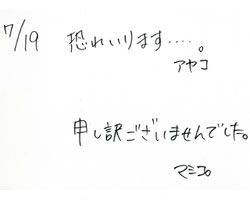 7/19 恐れいります....。
アヤコ
申し訳ございませんでした。
マミコ。